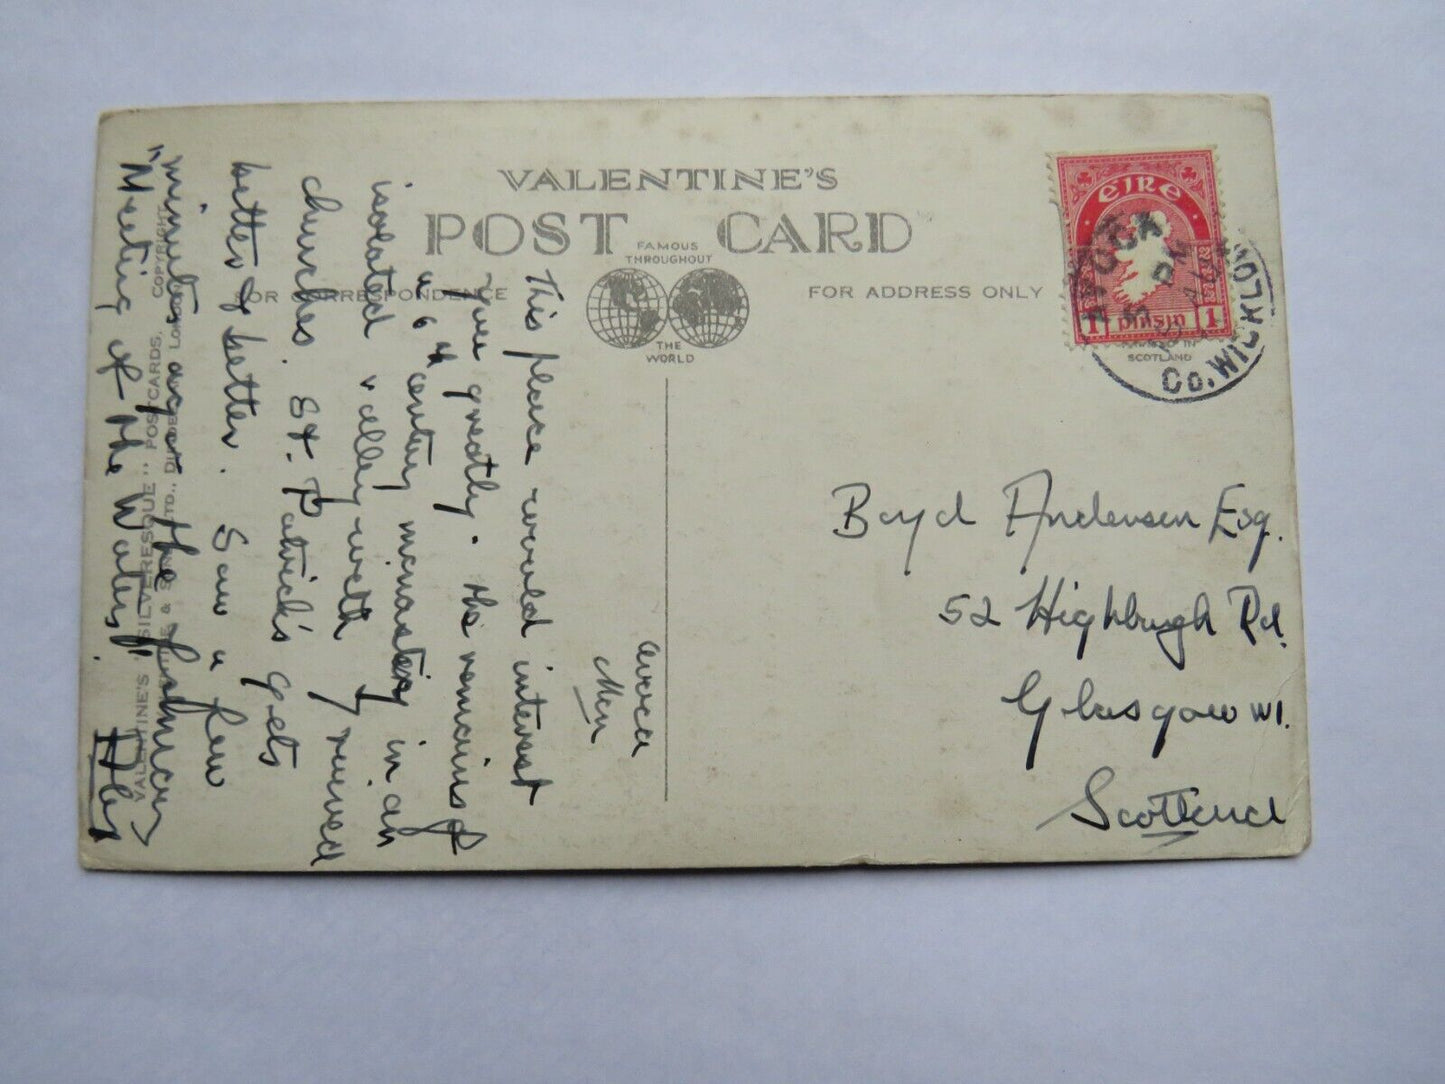 VALENTINE'S
POST CARD
FAMOUS
THROUGHOUT
THE
WORLD
FOR CORRESPONDENCE
FOR ADDRESS ONLY
éire
1 pinsin 1
IN
SCOTLAND
Co. WICKLOW
Boyd Anderson Esq.
52 Highburgh Rd.
Glasgow W1.
Scotland
Avoca
Mon
This place would interest
you greatly. The remains of
a 6th century monastery in an
isolated valley with 7 ruined
churches. St. Patrick's gets
better & better. Saw a few
minutes ago the famous
"Meeting of the Waters".
VALENTINE'S "SILVERESQUE" POSTCARDS. COPYRIGHT.
VALENTINE & SONS, LTD., DUNDEE LONDON